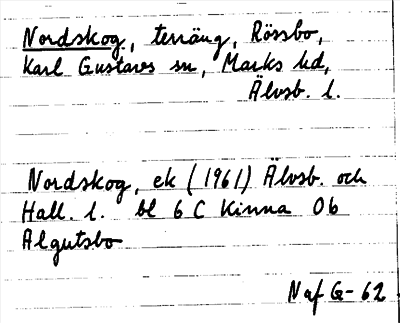 Nordskog, terräng, Rössbo,
Karl Gustavs sn, Marks hd,
Älvsb. l.
Nordskog, ek (1961) Älvsb. och
Hall. l. bl 6 C Kinna 0b
Algutsbo
Naf G-62